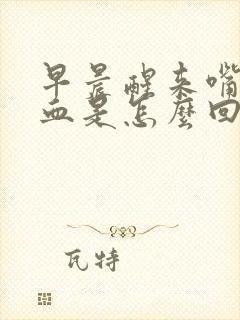 早晨醒来嘴
血是怎麼回
瓦特